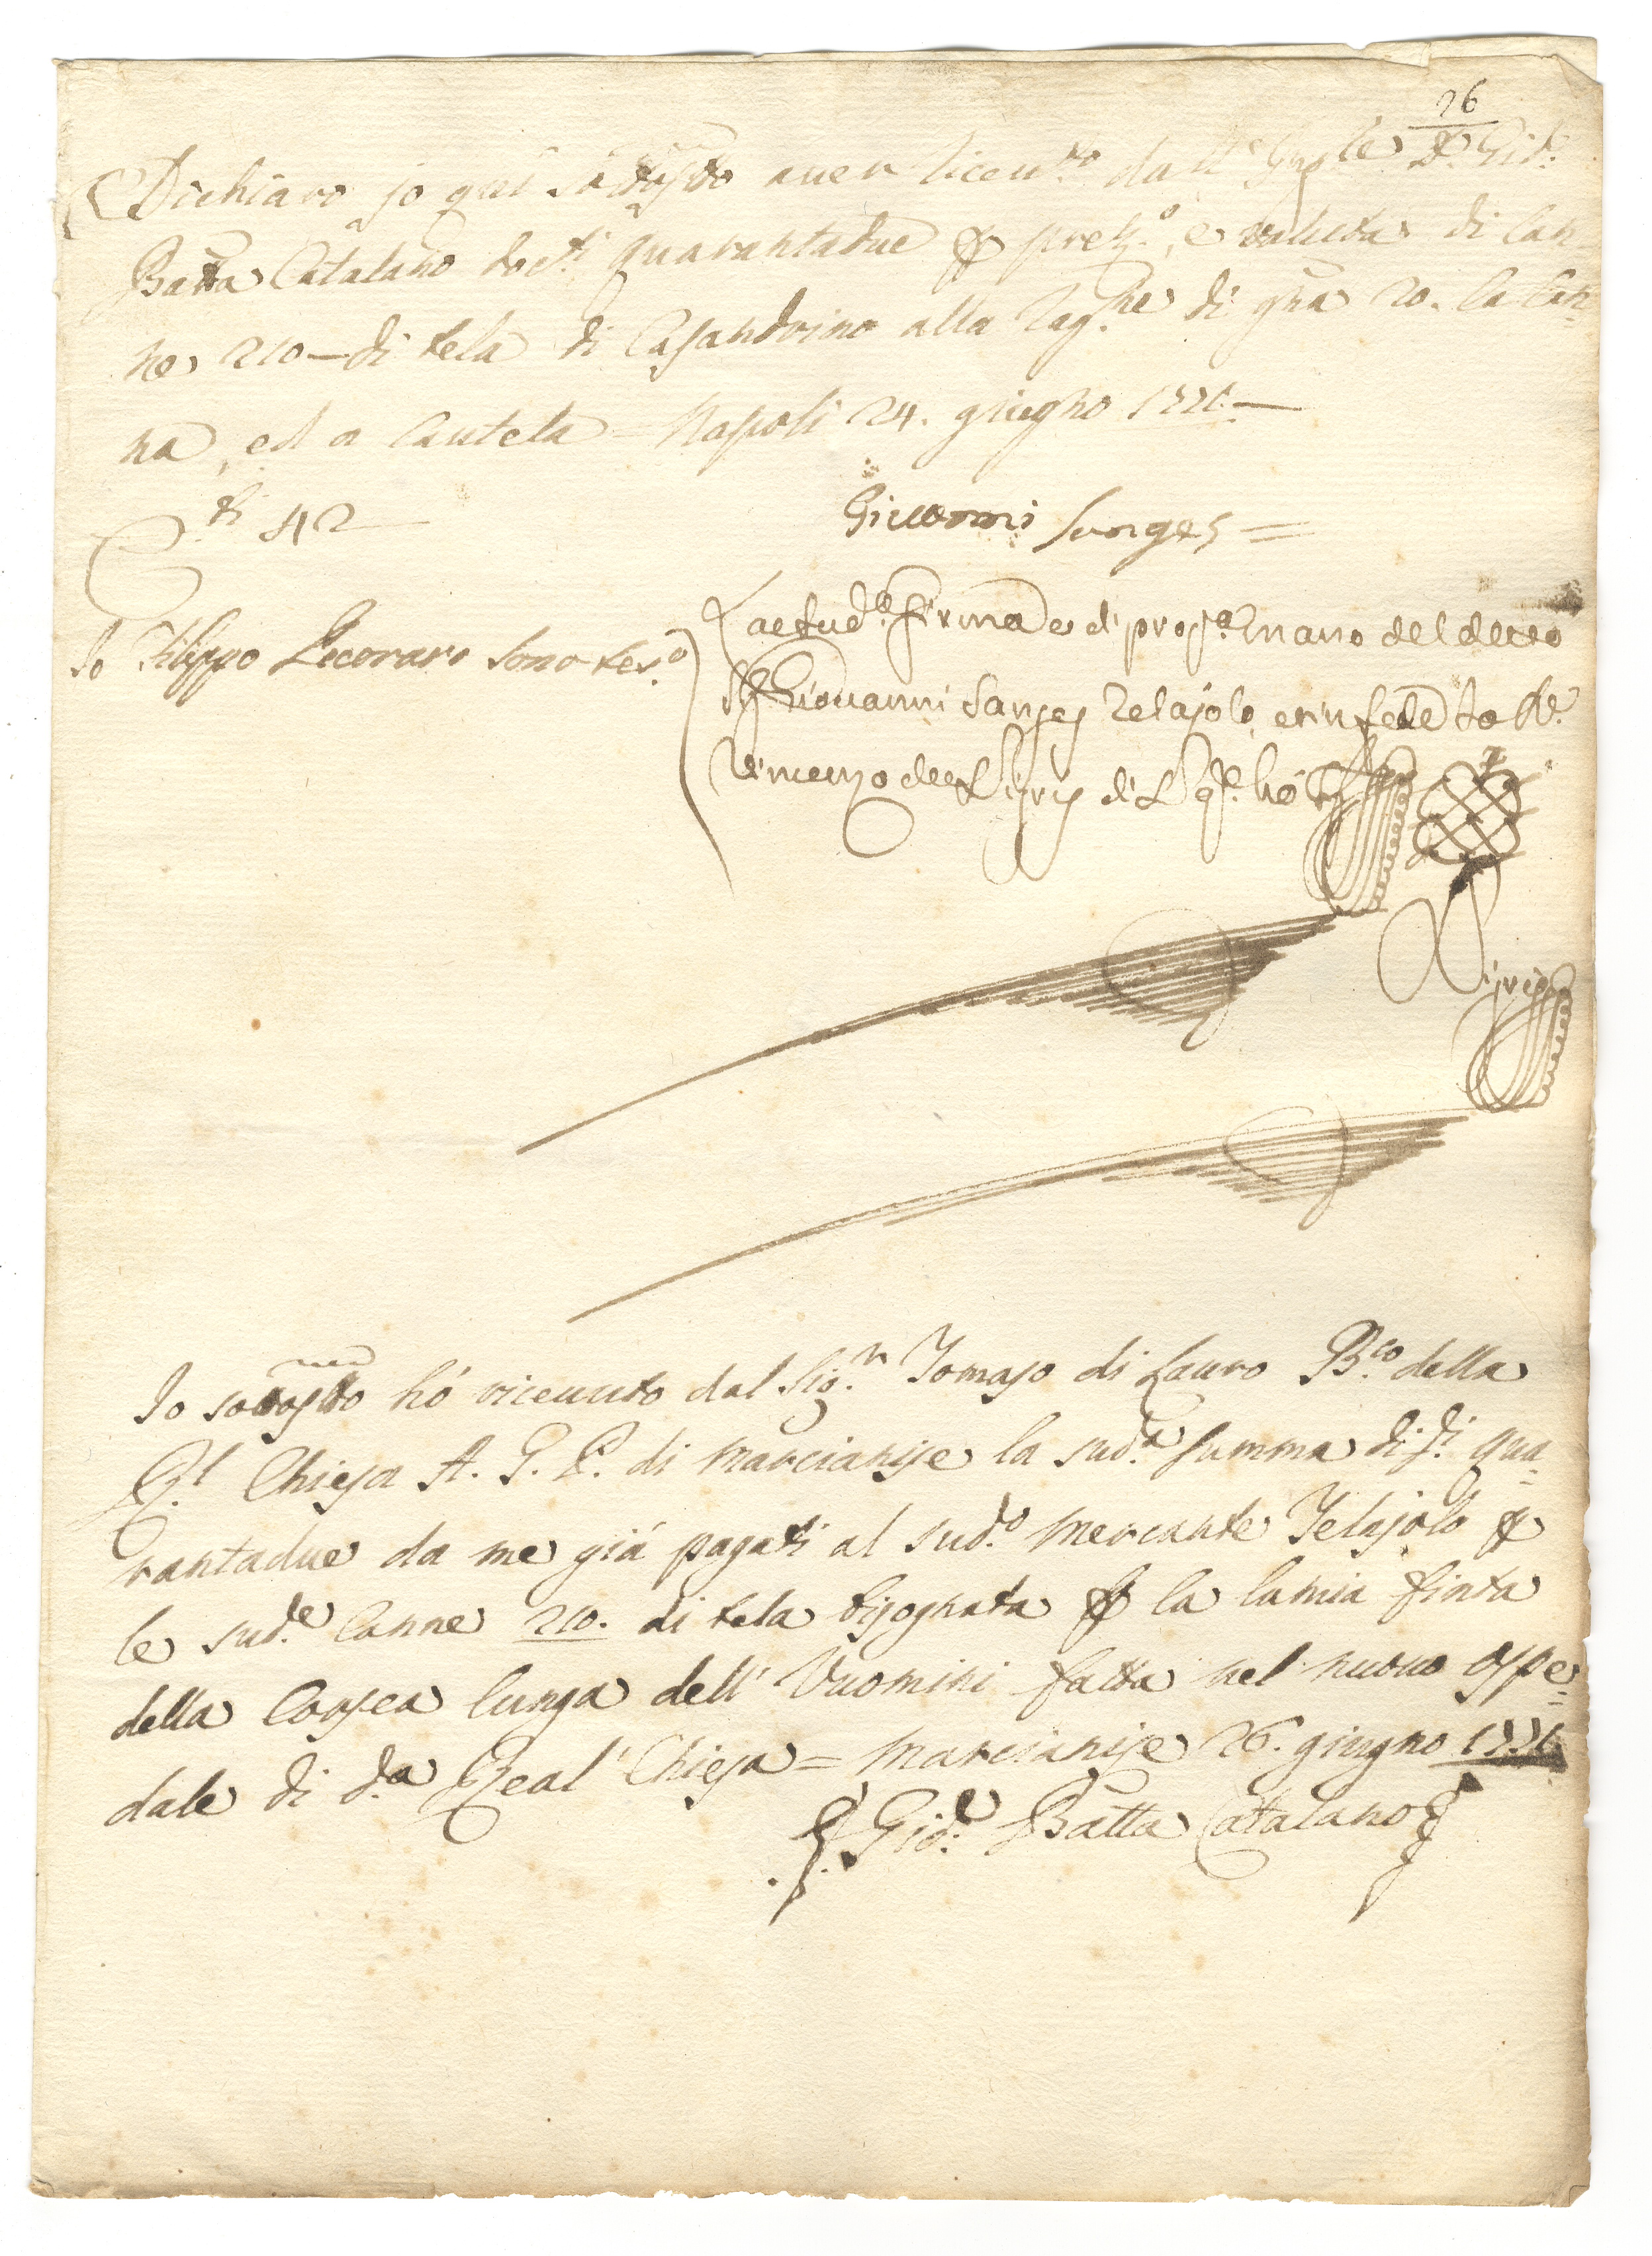 26
Dichiaro io qui sottostto aver riceuto dall' Ill.e D. Gio:
Batta Catalano doc.ti quarantadue per prez.o, e valuta di Can-
ne 210 – di tela di Casandrino alla rag.ne di gna 20. la Can=
na, ed a cautela = Napoli 24. giugno
D.ti 42
Giuoanni Sanges =
Io Filippo Pecoraro sono tes.o
La sud.a firma è di prop.a mano del detto
Giovanni Sanges Telajolo, et in fede io N.r
Vincenzo de Ligris di
Io sottostto hò riceuuto dal Sig.r Tomaso di Lauro B.co della
R.l Chiesa A. G. P. di Marcianise la sud.a summa di d.ti qua=
rantadue da me già pagati al sud.o mercante Telajolo per
le sud.e Canne 210. di tela bisognata per la lamia finta
della Corsea lunga dell' Vuomini fatta nel nuouo ospe=
dale di d.a Real' Chiesa = Marcianise 26. giugno
Gio: Batta Catalano